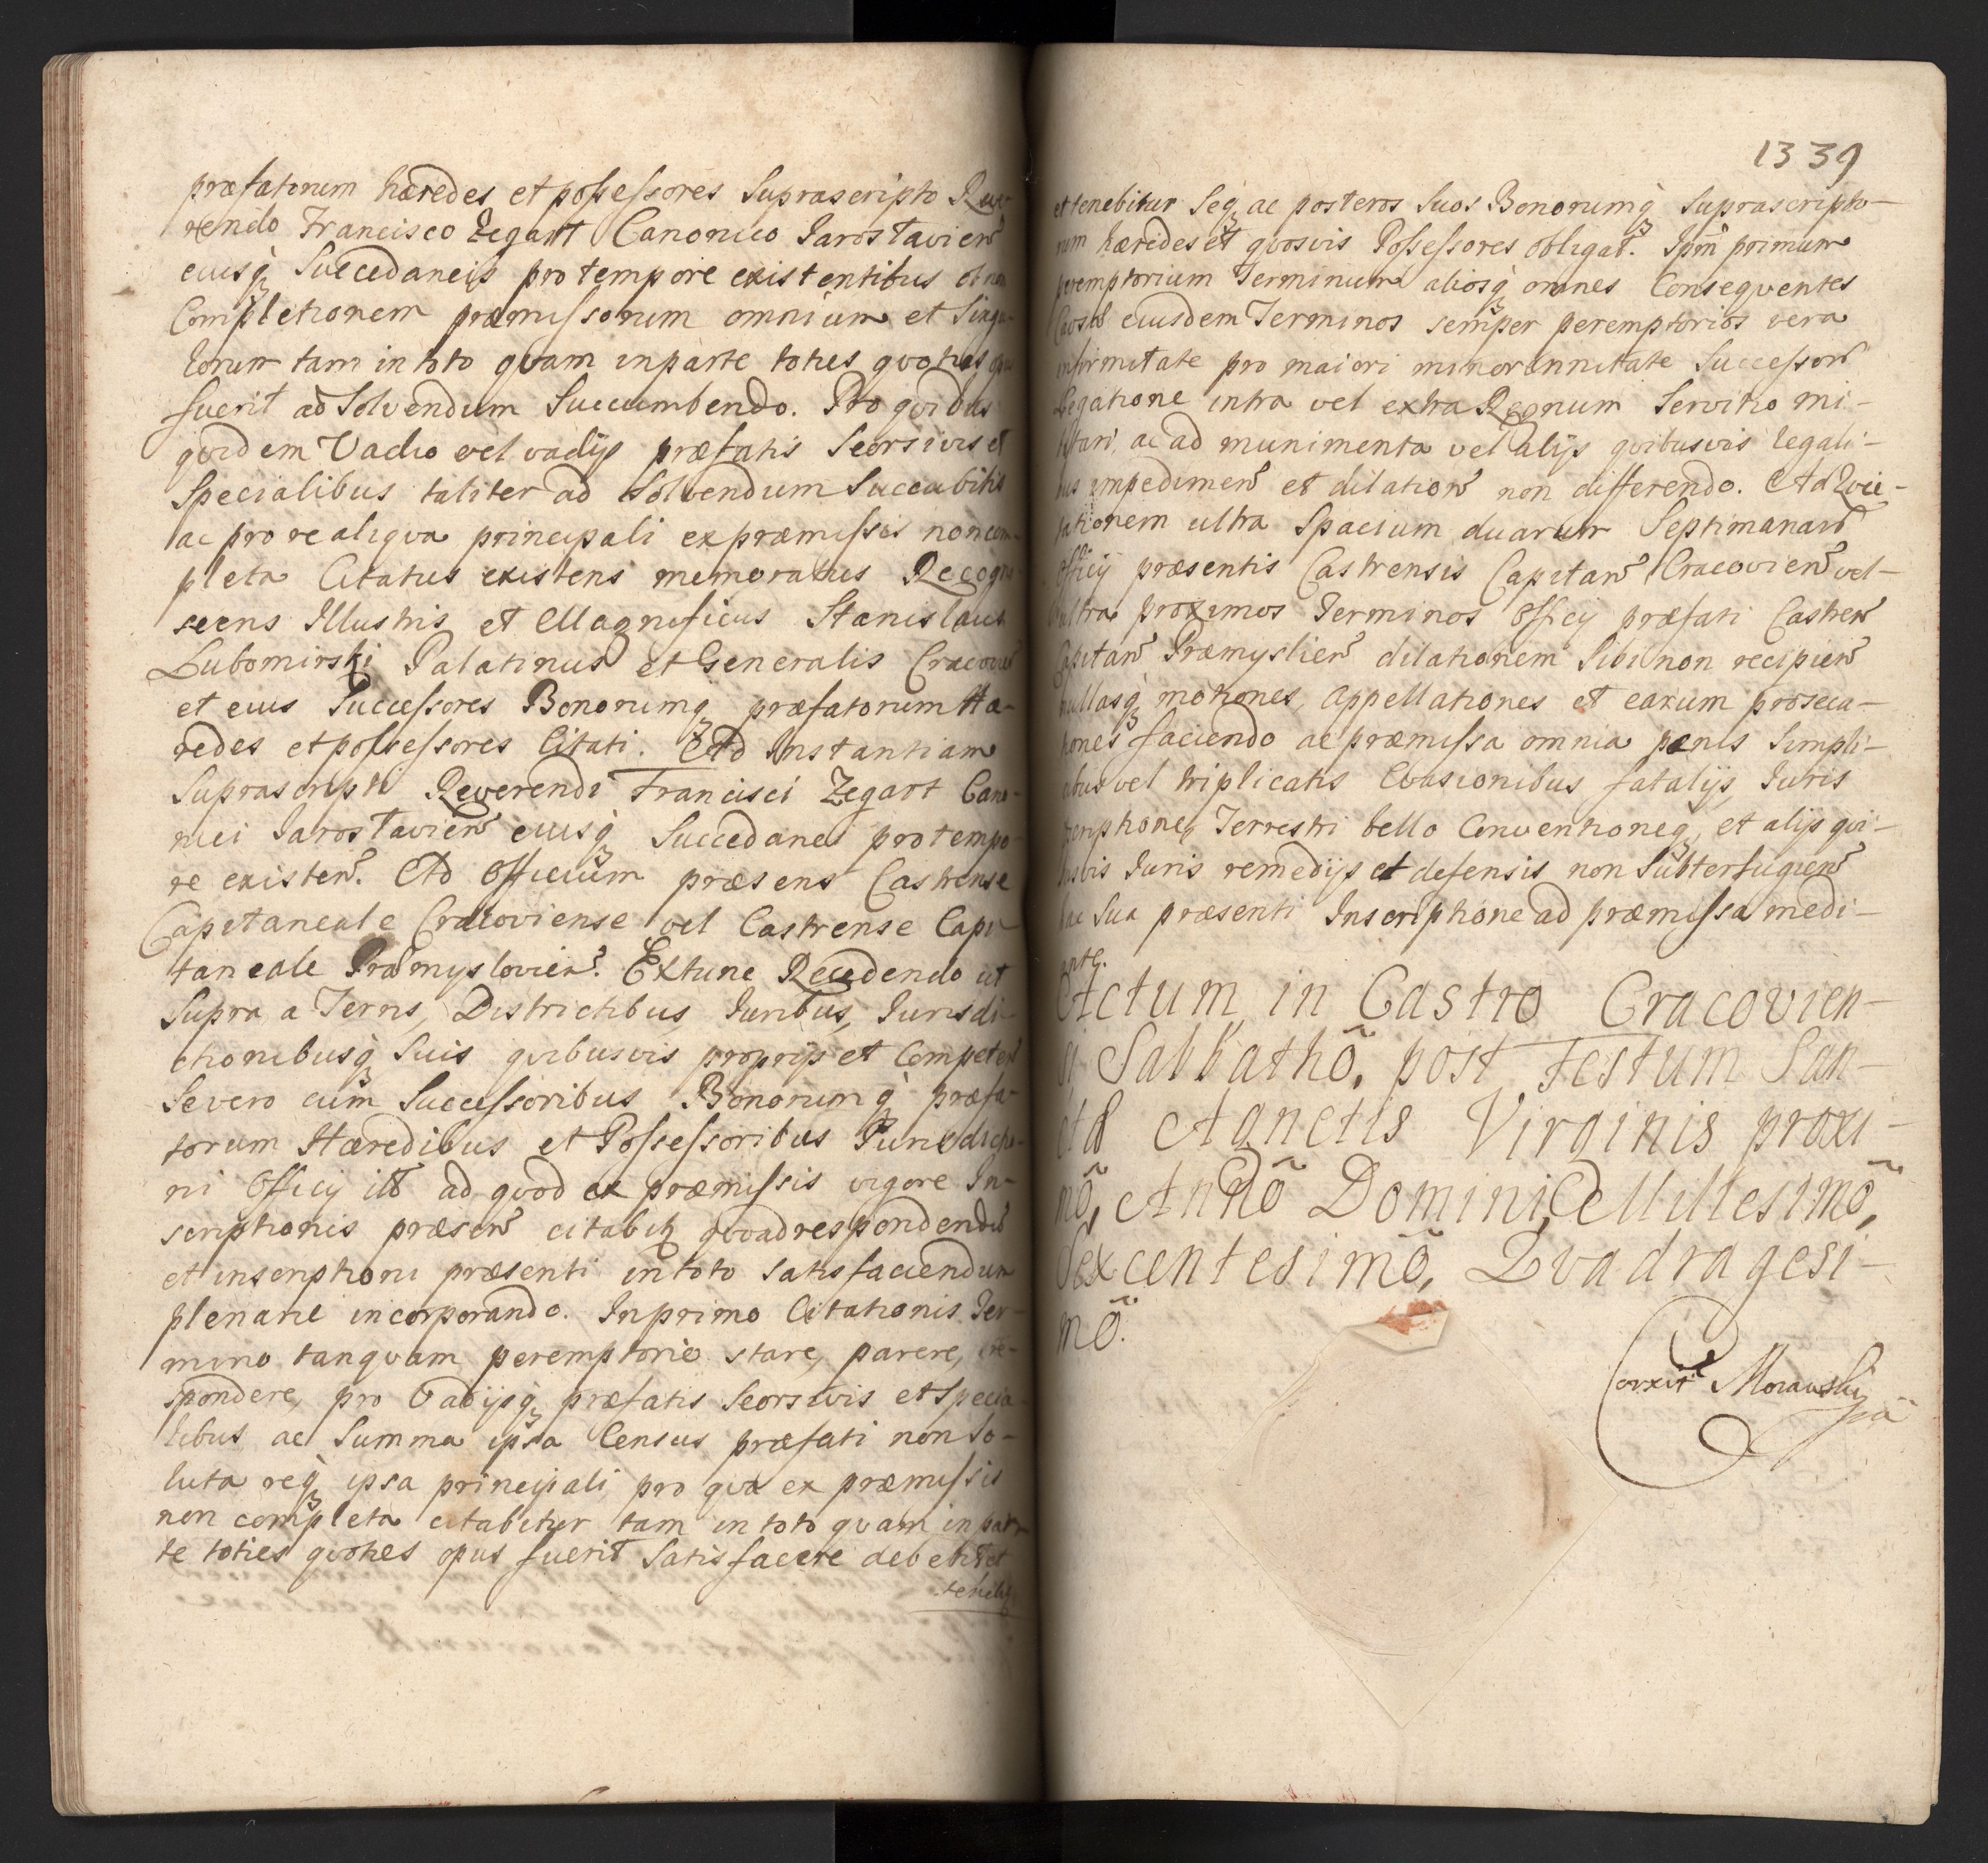 præfatorum hæredes et possessores Suprascripto Reve-
rendo Francisco Zegart Canonico Jaroslavien̄
eiusq̢ Succedaneis pro tempore existentibus ob non
Completionem præmissorum omnium et Singu-
lorum tam in toto qvam in parte toties qvoties opus
fuerit ad Solvendum Succumbendo. Pro qvibus
qvidem Vadio vel vadijs præfatis Seorsivis et
Specialibus taliter ad Solvendum Succubitis
ac pro re aliqva principali ex præmissis non com-
pleta Citatus existens memoratus Recogno-
scens Illustris et Magnificus Stanislaus
Lubomirski Palatinus et Generalis Cracovien̄
et eius Successores Bonorumq̢ præfatorum Hæ-
redes et possessores Citati. Ad Instantiam
Suprascripti Reverendi Francisci Zegart Cano-
nici Jaroslavien̄ eiusq̢ Succedanei pro tempo-
re existen̄. Ad Officium præsens Castrense
Capitaneale Cracoviense vel Castrense Capi-
taneale Præmyslovien̄. Extunc Recedendo ut
Supra a Terris, Districtibus Juribus, Jurisdi-
ctionibusq̢ Suis qvibusvis proprijs et Competen̄
Se vero cum Successoribus Bonorumq̢ præfa-
torum Hæredibus et Possessoribus Jurisdictio-
ni Officij ill̄ ad qvod ex præmissis vigore In-
scriptionis præsen̄ citabit̢ qvoad respondendū
et inscriptioni præsenti in toto satisfaciendum
plenarie incorporando. In primo Citationis Ter-
mino tanqvam peremptorie stare, parere, re-
spondere, pro Vadijsq̢ præfatis Seorsivis et Specia-
libus ac Summa ipsa Census præfati non So-
luta req̢ ipsa principali pro qva ex præmissis
non completa citabitur tam in toto qvam in par-
te toties qvoties opus fuerit Satisfacere debebit et
tenebit̢
1339
et tenebitur Seq̢ ac posteros Suos Bonorumq̢ Suprascripto-
rum hæredes et qvosvis Possessores obligat. Ipm̄ primum
peremptorium Terminum aliosq̢ omnes Conseqventes
Causæ eiusdem Terminos semper peremptorios vera
infirmitate pro maiori minorennitate Successorū
Legatione intra vel extra Regnum Servitio mi-
litari, ac ad munimenta vel alijs qvibusvis legali-
bus impedimen̄ et dilation̄ non differendo. Ad
ultra Spacium duarum Septimanarū
Officij præsentis Castrensis Capitan̄ Cracovien̄ vel
ultra proximos Terminos Officij præfati Castren̄
Capitan̄ Præmyslien̄ dilationem Sibi non recipien̄
nullasq̢ motiones, appellationes et earum prosecu-
tiones faciendo ac præmissa omnia pænis Simpli-
cibus vel triplicatis Evasionibus fatalijs, Juris
scriptione, Terrestri bello Conventioneq̢, et alijs qvi-
busvis Juris remedijs et defensis non Subterfugien̄
hac Sua præsenti Inscriptione ad præmissa medi-
ante.
Actum in Castro Cracovien-
si Sabbathō, post Festum San-
ctæ Agnetis Virginis proxi-
mō, Annō Domini Millesimō,
Sexcentesimō, Qvadragesi-
mō.
Corxit Morawsky